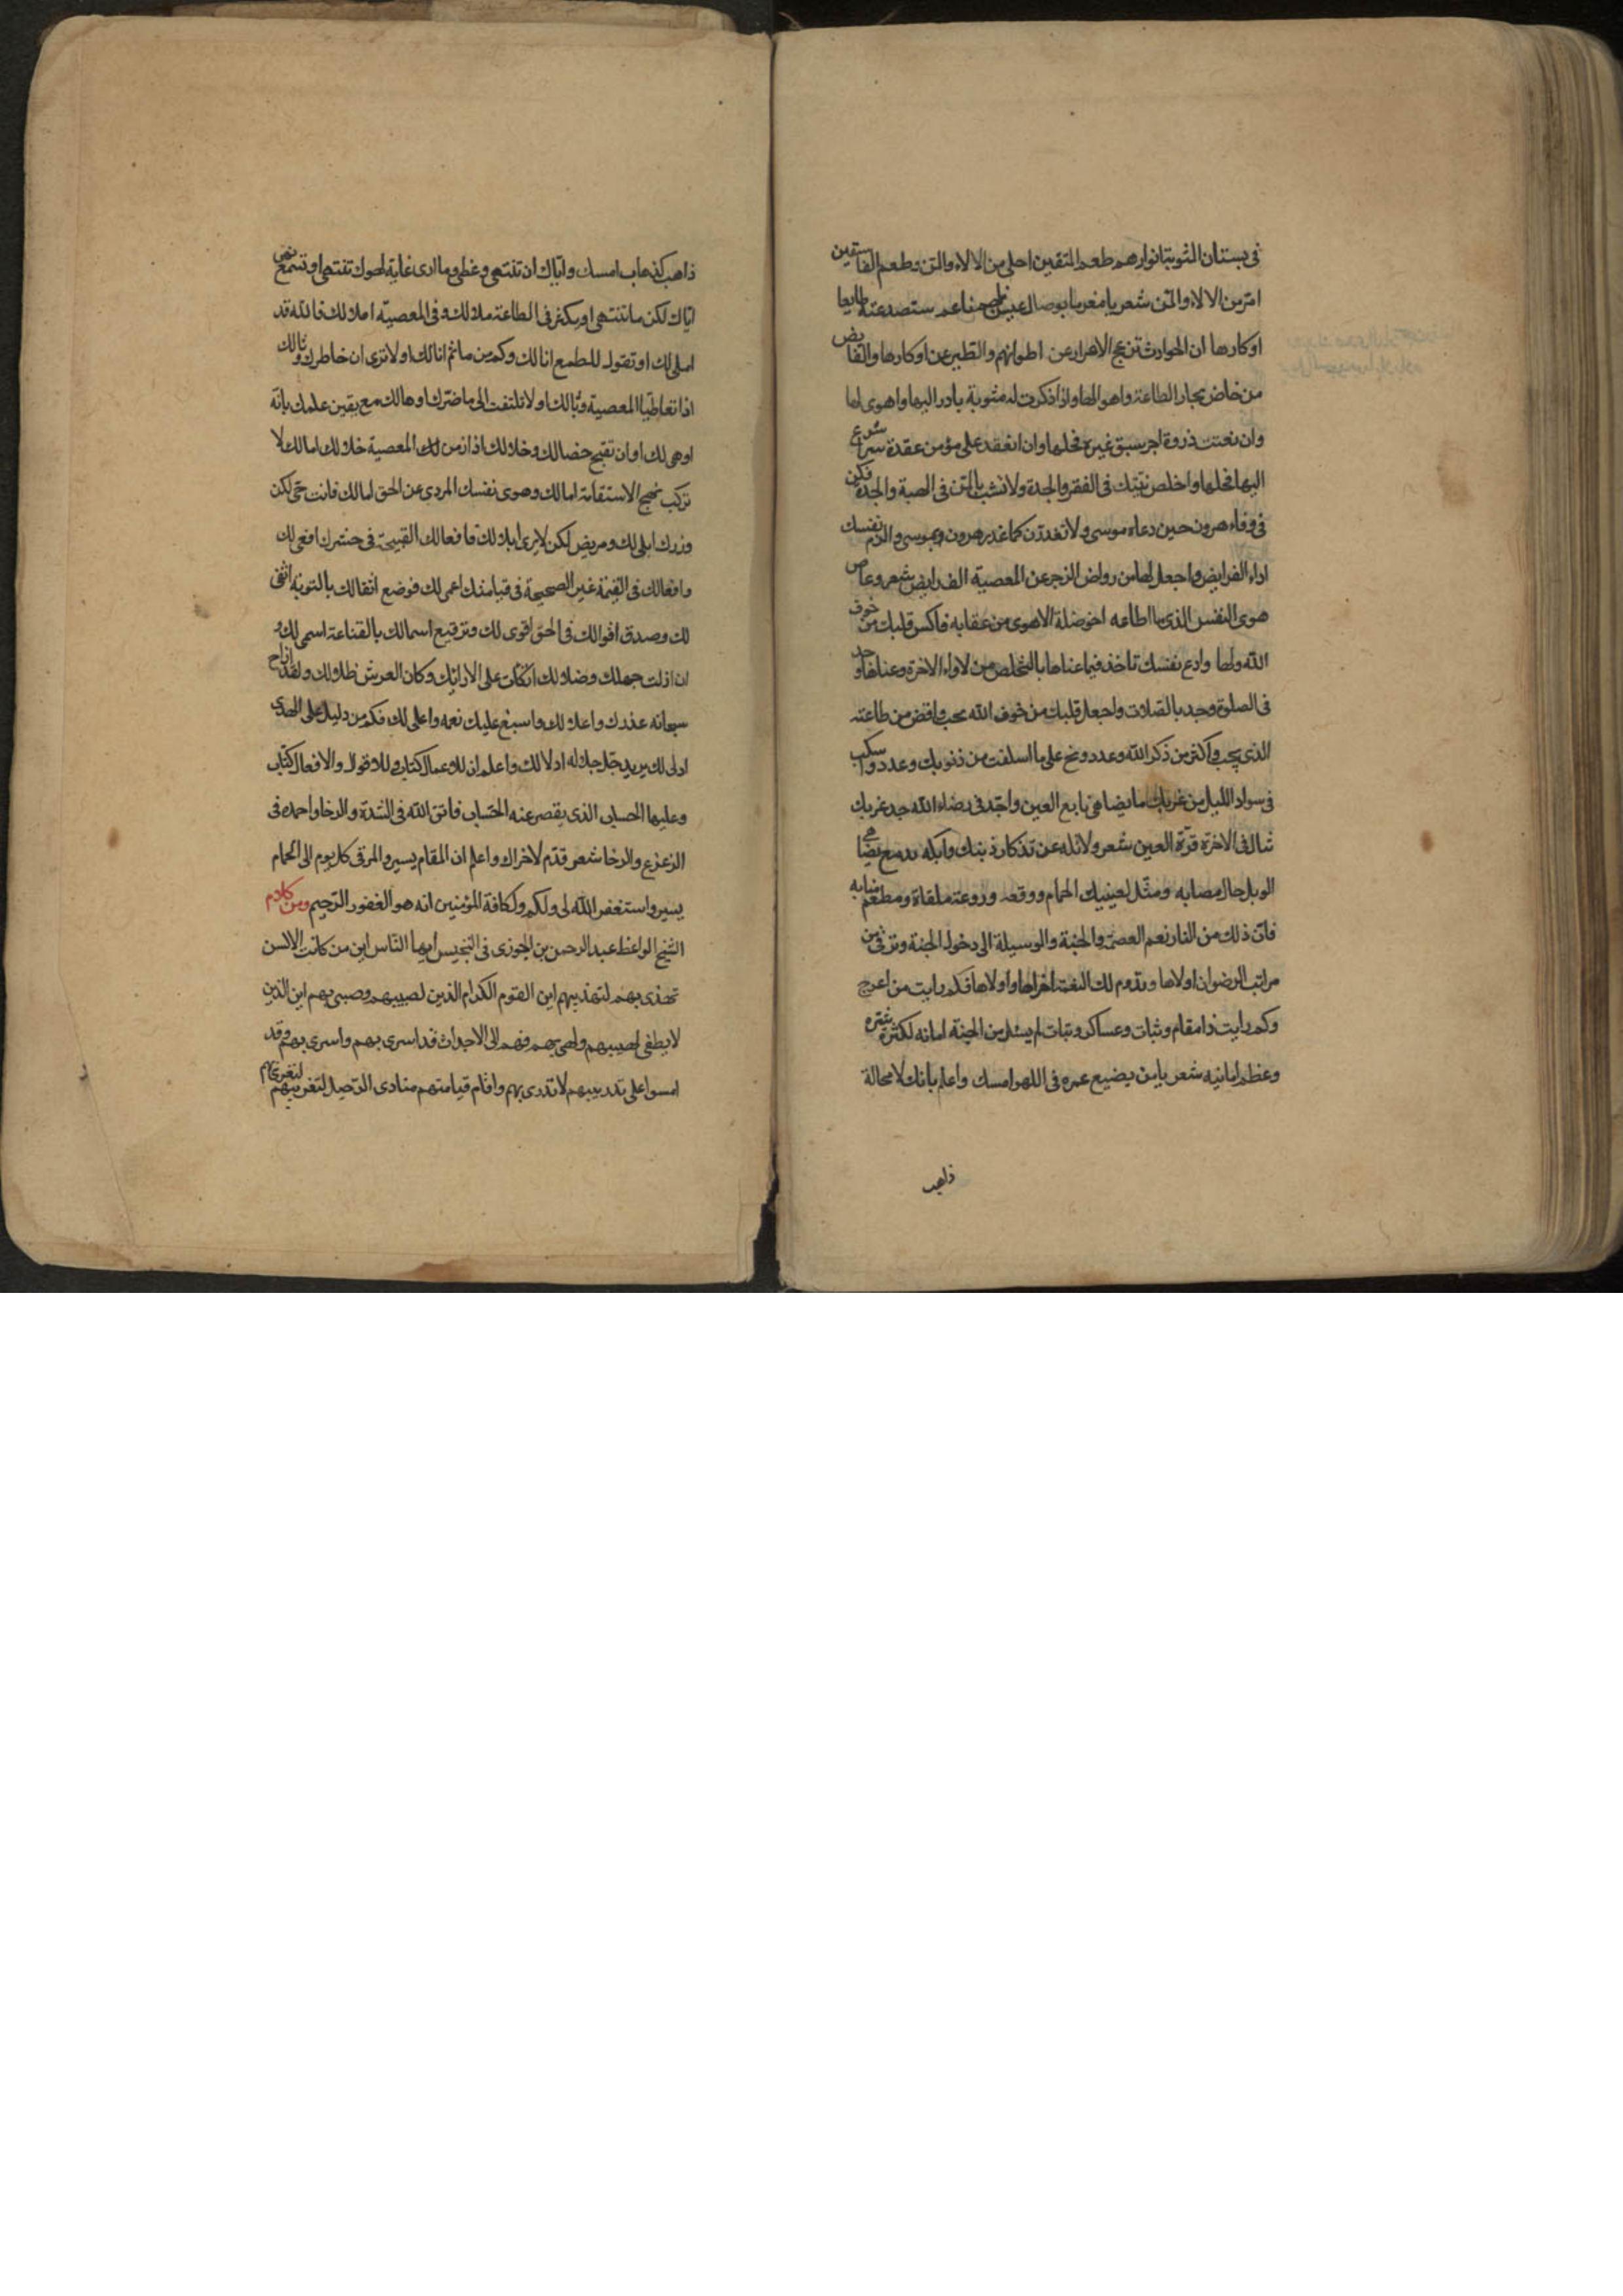 فى بستان المثوبة انوارهم طعم المتقين احلى من الالاء والمن وطعم الفاسقين
امر من الالاء والمن شعر يا مغرما بوصال عيش ناعم ستصد عنه طايعا
اوكارها ان الحوادث تزعج الاحرار عن اوطانهم والطير عن اوكارها والفايض
من خاض بحار الطاعة واهوالها واذا ذكرت له مثوبة بادر اليها واهوى لها
وان نعتت ذروة اجر سبق غيره فحلها وان انعقد على مؤمن عقدة شر اسرع
اليها فحلها واخلص نيتك فى الفقر والجدة ولا تشب بالمن فى الهبة والجدة فكن
فى وفاء هرون حين دعاء موسى ولا تغدرن كما غدر هرون بموسى والزم نفسك
اداء الفرايض واجعل لها من رواض الزجر عن المعصية الف رايض شعر وعاص
هوى النفس الذى ما اطاعه اخو ضلة الا هوى من عقابه فاكس قلبك من خوف
الله ولها وادع نفسك تاخذ فيما عناها بالتخلص من لاواء الاخرة وعناها وجد
فى الصلوة وجد بالصلات واجعل قلبك من خوف الله يجب واقض من طاعته
الذى يجب واكثر من ذكر الله وعدد ونح على ما اسلفت من ذنوبك وعدد واسكب
فى سواد الليل من غربك ما يضاهى نابع العين واجد فى رضاء الله حد غربك
تنال فى الاخرة قرة العين شعر ولا تله عن تذكار ذنبك وابكه بدمع يضاهى
الوبل حال مصابه ومثل لعينيك الحمام ووقعه وروعة ملقاه ومطعم صابه
فان ذلك من النار نعم العصمة والجنة والوسيلة الى دخول الجنة وترقى من
مراتب الرضوان اولاها وتدوم لك النعمة اخراها واولاها فكم رايت من اعرج
وكم رايت ذا مقام وثبات وعساكر وثبات لم يسئل من الجنة امانه لكثرة شره
وعظم امانيه شعر يا من يضيع عمره فى اللهو امسك واعلم بانك لا محالة
ذاهب
ذاهب كذهاب امسك واياك ان تنتهى وغطى وما ارى غاية لهوك تنتهى او تسمع نهى
اياك لكن ما تنتهى او يكثر فى الطاعة ملالك وفى المعصية املالك فالله قد
املى لك او تقول للطمع انا لك وكم من مأثم انالك اولا ترى ان خاطرك وثالك
اذا تعاطيا المعصية وثالك اولا تلتفت الى ما ضرك اوهالك مع يقين علمك بانه
اوهى لك او ان تقبح خصالك وخلالك اذا زمن لك المعصية خلا لك امالك لا
تركب نهج الاستقامة امالك وهوى نفسك المردى عن الحق امالك فانت حى لكن
وزرك ابلى لك ومريض لكن لا يرى ابلالك فافعالك القبيحة فى حشرك افعى لك
وافعالك فى القيمة غير الصحيحة فى قيامتك اعمى لك فوضع اثقالك بالتوبة اثقى
لك وصدق اقوالك فى الحق اقوى لك وترقيع اسمالك بالقناعة اسمى لك و
ان ازلت جهلك وضلالك اتكأت على الارائك وكان العرش ظلالك ولقد ازاح
سبحانه عذرك واعلالك واسبغ عليك نعمه واعلى لك فكم من دليل على الهدى
ادلى لك يريد جل جلاله ادلالك واعلم ان للاعمال كتاب وللاقوال والافعال كتاب
وعليها الحساب الذى يقصر عنه الحساب فاتق الله فى الشدة والرخا واحمده فى
الزعزع والرخا شعر قدم لاخراك واعلم ان المقام يسير والمرقى كل يوم الى الحمام
يسير واستغفر الله لى ولكم ولكافة المؤمنين انه هو الغفور الرحيم ومن كلام
الشيخ الواعظ عبد الرحمن بن الجوزى فى التجنيس ايها الناس اين من كانت الالسن
تهذى بهم لتهذيبهم اين القوم الكرام الذين لصبيهم وصبى بهم اين الذين
لا يطفى لهيبهم ولهى بهم فهم الى الاجداث قد اسرى بهم واسرى بهم وقد
امسوا على تدريبهم لا تدرى بهم واقام قيامتهم منادى الرحيل لتغريبهم لتغرى بهم